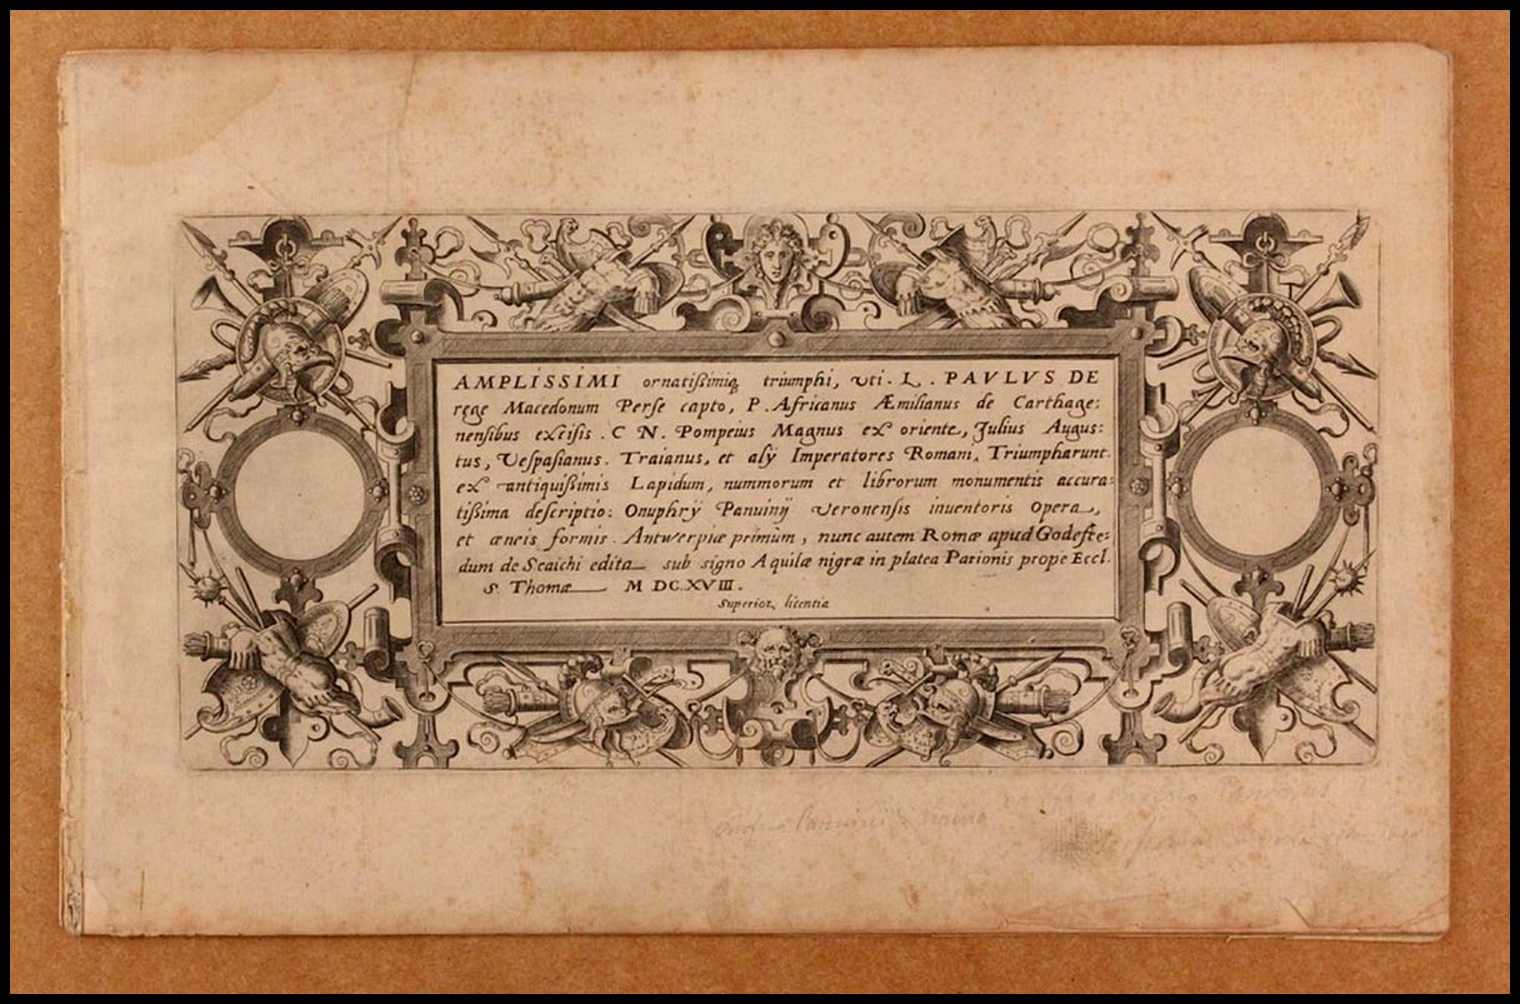 AMPLISSIMI ornatißimiq; triumphi, vti. L. PAVLVS DE
rege Macedonum Perse capto, P. Africanus Æmilianus de Carthage:
nensibus excisis. C N. Pompeius Magnus ex oriente, Julius Augus:
tus, Vespasianus. Traianus, et alÿ Imperatores Romani, Triumpharunt.
ex antiquißimis Lapidum, nummorum et librorum monumentis accura:
tißima descriptio: Onuphrÿ Panuinÿ veronensis inuentoris opera,
et æneis formis Antwerpiæ primùm, nunc autem Romæ apud Godefre:
dum de Scaichi edita sub signo Aquilæ nigræ in platea Parionis prope Eccl.
S. Thomæ M DC.XVIII.
Superior, licentia